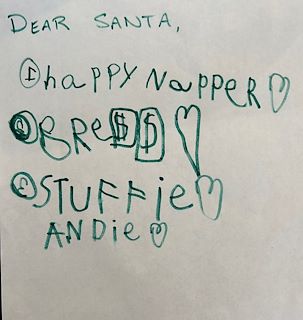 DEAR SANTA,
① haPPY NaPPER ♡
② BRe$$ ♡
③ STUFFie ♡
ANDie ♡